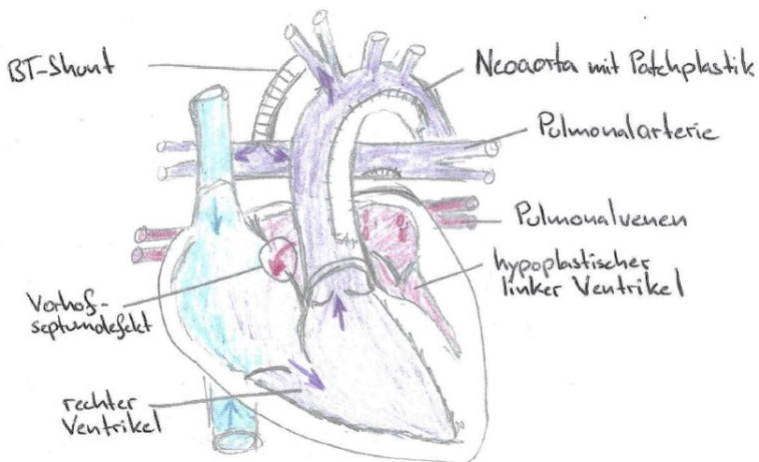 BT-Shunt
Neoaorta mit Patchplastik
Pulmonalarterie
Pulmonalvenen
hypoplastischer
linker Ventrikel
Vorhof-
septumdefekt
rechter
Ventrikel